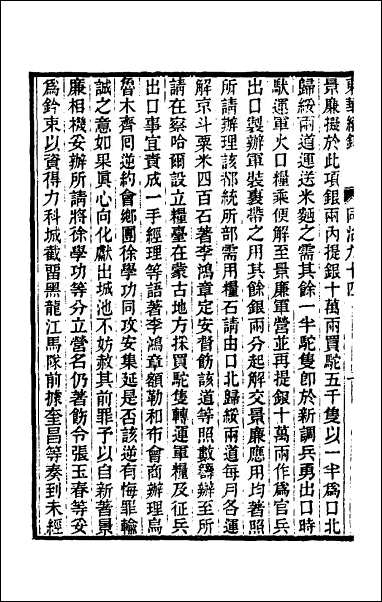 東華續錄 同治九十四
景廉擬於此項銀兩內提銀十萬兩買駝五千隻以一半爲口北
歸綏兩道運送米麵之需其餘一半駝隻卽於新調兵勇出口時
馱運軍火口糧乘便解至景廉軍營並再提銀十萬兩作爲官兵
出口製辦軍裝裹帶之用其餘銀兩分起解交景廉應用均著照
所請辦理該都統所部需用糧石請由口北歸綏兩道每月各運
解京斗粟米四百石著李鴻章定安督飭該道等照數籌辦至所
請在察哈爾設立糧臺在蒙古地方採買駝隻轉運軍糧及征兵
出口事宜責成一手經理等語著李鴻章額勒和布會商辦理烏
魯木齊回逆約會鄉團徐學功同攻安集延是否該逆有悔罪輸
誠之意如果眞心向化獻出城池不妨赦其前罪予以自新著景
廉相機妥辦所請將徐學功等分立營名仍著飭令張玉春等妥
爲鈐束以資得力科城截留黑龍江馬隊前據奎昌等奏到未經